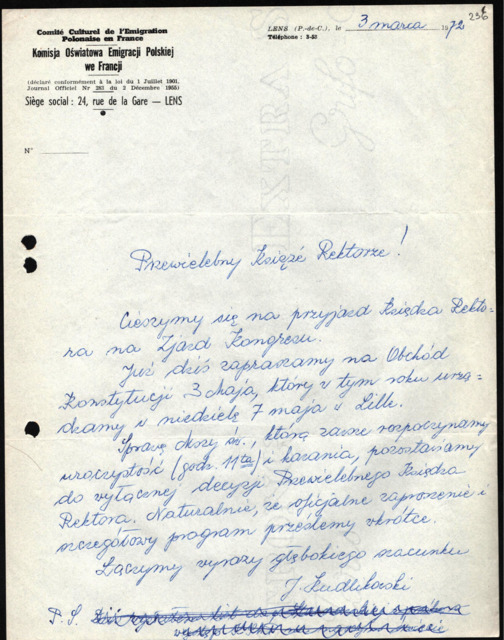 236
Comité Culturel de l'Emigration
Polonaise en France
Komisja Oświatowa Emigracji Polskiej
we Francji
(déclaré conformément à la loi du 1 Juillet 1901.
Journal Officiel Nr 283 du 2 Décembre 1955)
Siège social : 24, rue de la Gare — LENS
N°
LENS (P.-de-C.), le 3 marca 1972
Téléphone : 5-53
EXTRA
Przewielebny Księże Rektorze!
Cieszymy się na przyjazd Księdza Rekto-
ra na Zjazd Kongresu.
Już dziś zapraszamy na Obchód
Konstytucji 3 Maja, który w tym roku urzą-
dzamy w niedzielę 7 maja w Lille.
Sprawę Mszy św., którą zawsze rozpoczynamy
uroczystość (godz. 11ta) i kazania, pozostawiamy
do wyłącznej decyzji Przewielebnego Księdza
Rektora. Naturalnie, że oficjalne zaproszenie i
szczegółowy program prześlemy wkrótce.
Łączymy wyrazy głębokiego szacunku
J. Kudlikowski
P. S.